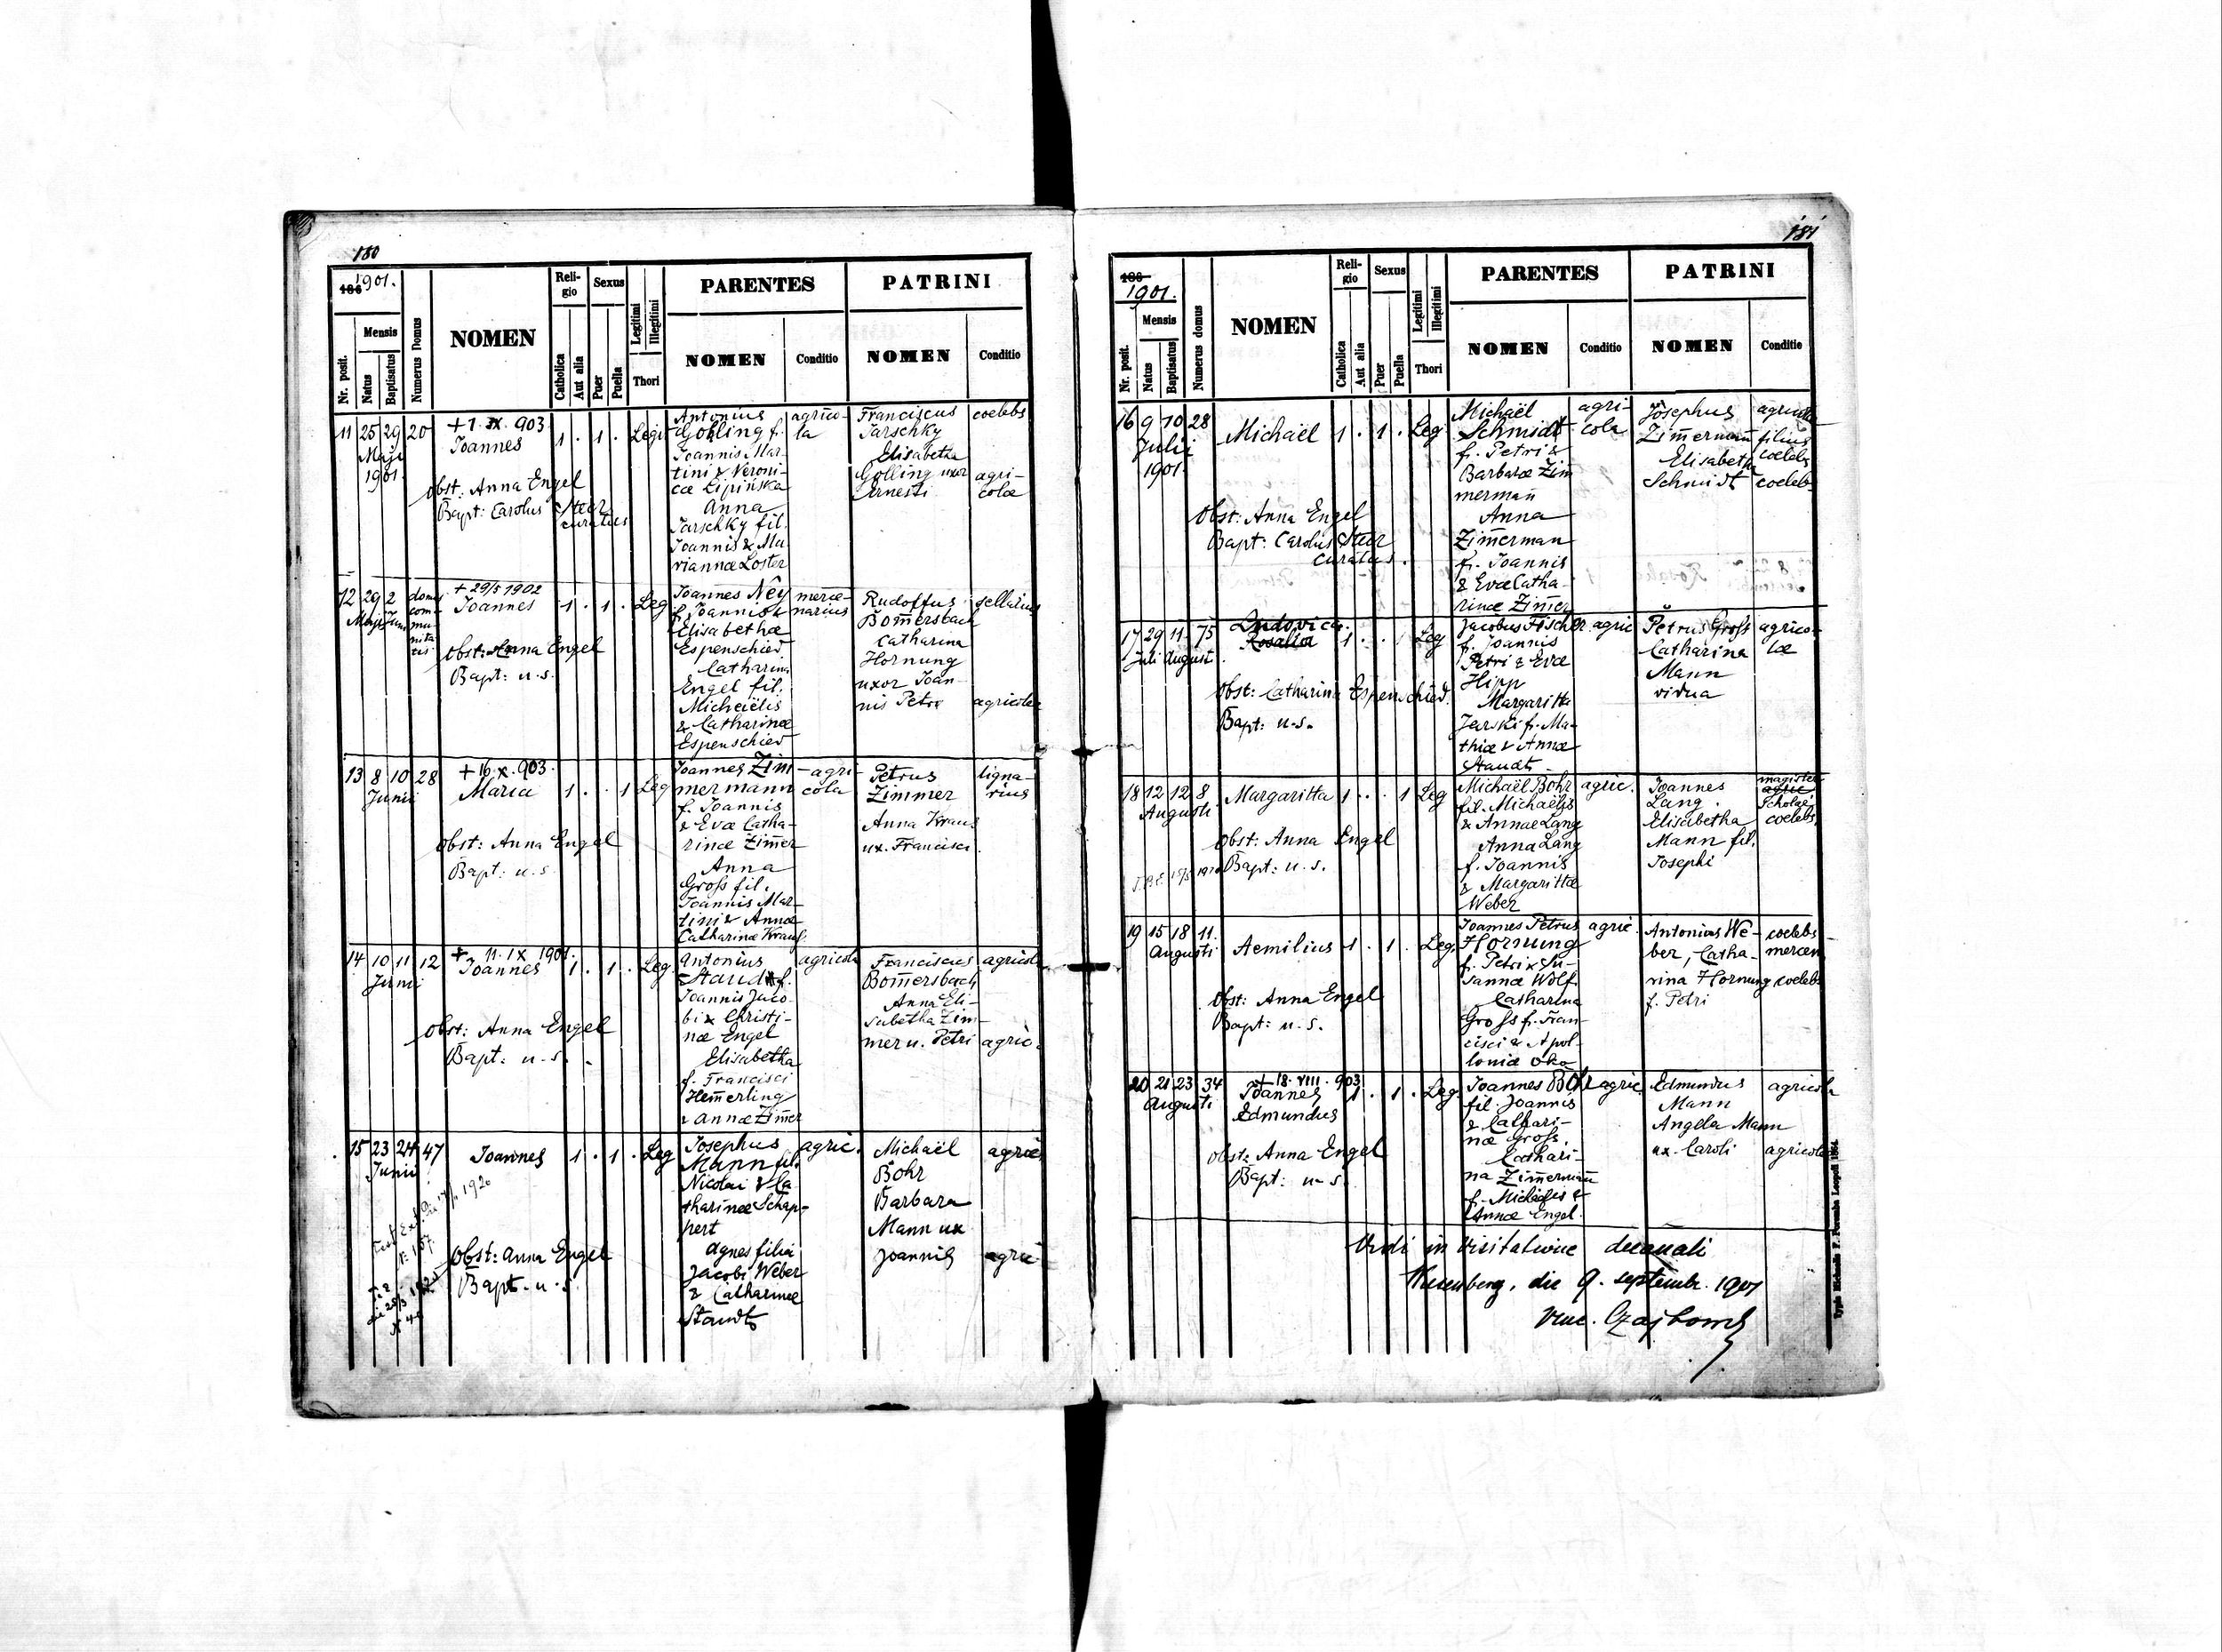 180
1901.
Nr. posit.
Mensis
Natus
Baptisatus
Numerus Domus
NOMEN
Reli-
gio
Catholica
Aut alia
Sexus
Puer
Puella
Legitimi
Illegitimi
Thori
PARENTES
NOMEN
Conditio
PATRINI
NOMEN
Conditio
11 25 29 20
Maji
1901.
+ 1. IX. 903
Joannes
1 . 1 . Legit
obst: Anna Engel
Bapt: Carolus Steer
curatus
Antonius
Golling f.
Joannis Mar-
tini & Veroni-
cæ Lipińska
Anna
Jarschky fil.
Joannis & Ma
riannæ Loster
agrico-
la
Franciscus
Jarschky
Elisabetha
Golling uxor
Ernesti
coelebs
agri-
colæ
12 29 2
Maji Juni
domus
com-
mu-
nita-
tis
+ 29/5 1902
Joannes
1 . 1 . Leg
Obst: Anna Engel
Bapt: u. s.
Joannes Ney
f. Joannis &
Elisabethæ
Espenschied
Catharina
Engel fil.
Michaëlis
& Catharinæ
Espenschied
merce-
narius
Rudolfus
Bom̄ersbach
Catharina
Hornung
uxor Joan-
nis Petri
sellarius
agricolæ
13 8 10 28
Junii
+ 16. X. 903.
Maria
1 . . 1 Leg
Obst: Anna Engel
Bapt: u. s.
Joannes Zim
mermann
f. Joannis
& Evæ Catha-
rinæ Zim̄er
Anna
Groſs fil.
Joannis Mar-
tini & Annæ
Catharinæ Kraus
agri-
cola
Petrus
Zimmer
Anna Kraus
ux. Francisci
ligna-
rius
14 10 11 12
Junii
+ 11. IX 1901.
Joannes
1 . 1 . Leg
Obst: Anna Engel
Bapt: u. s.
Antonius
Staudt f.
Joannis Jaco
bi & Christi-
næ Engel
Elisabetha
f. Francisci
Hem̄erling
& Annæ Zim̄er
agricola
Franciscus
Bom̄ersbach
Anna Eli-
sabetha Zim-
mer u. Petri
agricola
agric.
15 23 24 47
Junii
Joannes
1 . 1 . Leg
Obst: Anna Engel
Bapt. u. s.
Josephus
Mann fil.
Nicolai & Ca
tharinæ Schap-
pert
Agnes filia
Jacobi Weber
& Catharinæ
Staudt
agric.
Michaël
Bohr
Barbara
Mann ux
Joannis
agric.
agric.
181
1901.
Nr. posit.
Mensis
Natus
Baptisatus
Numerus domus
NOMEN
Reli-
gio
Catholica
Aut alia
Sexus
Puer
Puella
Legitimi
Illegitimi
Thori
PARENTES
NOMEN
Conditio
PATRINI
NOMEN
Conditio
16 9 10 28
Julii
1901.
Michaël
1 . 1 . Leg
Obst: Anna Engel
Bapt: Carolus Steer
curatus.
Michaël
Schmidt
f. Petri &
Barbaræ Zim̄
mermañ
Anna
Zim̄erman
f. Joannis
& Evæ Catha-
rinæ Zim̄er
agri-
cola
Josephus
Zim̄ermañ
Elisabetha
Schmidt
agricola
filius
coelebs
coeleb.
17 29 11 75
Juli August.
Ludovica
Rosalia
1 . . 1 Leg
Obst: Catharina Espenschied.
Bapt: u. s.
Jacobus Fischer
f. Joannis
Petri & Evæ
Hipp
Margaritta
Jarski f. Ma-
thiæ & Annæ
Staudt
agric
Petrus Groſs
Catharina
Mann
vidua
agrico-
læ
18 12 12 8
Augusti
Margaritta
1 . . 1 Leg
Obst: Anna Engel
Bapt: u. s.
Michaël Bohr
fil. Michaëlis
& Annae Lang
Anna Lang
f. Joannis
& Margarittæ
Weber
agric.
Joannes
Lang.
Elisabetha
Mann fil.
Josephi
magister
agric
scholæ,
coelebs
19 15 18 11
Augusti
Aemilius
1 . 1 . Leg.
Obst: Anna Engel
Bapt: u. s.
Joannes Petrus
Hornung
f. Petri & Su-
sannæ Wolf
Catharina
Groſs f. Fran-
cisci & Apol-
loniæ Oko
agric.
Antonius We-
ber, Catha-
rina Hornung
f. Petri
coelebs
mercen
coelebs
20 21 23 34
Augusti
+ 18. VIII. 903
Joannes
Edmundus
1 . 1 . Leg.
Obst: Anna Engel
Bapt: u. s.
Joannes Bohr
fil. Joannis
& Cathari-
næ Groſs.
Cathari-
na Zim̄ermañ
f. Michaëlis &
Annæ Engel.
agric.
Edmundus
Mann
Angela Mann
ux. Caroli
agricola
agricola
Vidi in visitatione decanali
die 9. septembr. 1901
Typis